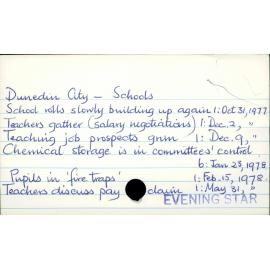 Dunedin City - Schools
School rolls slowly building up again 1: Oct 31, 1977
Teachers gather (salary negotiations) 1: Dec. 2, "
Teaching job prospects grim 1: Dec. 9, "
Chemical storage is in committees' control
6: Jan 23, 1978
Pupils in 'fire traps' 1: Feb. 15, 1978.
Teachers discuss pay claim 1: May 31, "
EVENING STAR